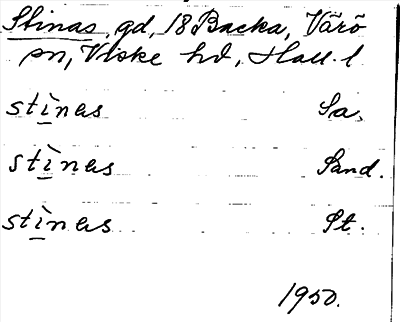 Stinas, gd, 18 Backa, Värö
sn, Viske hd, Hall. l
stìnas Sa.
stìnas Sand.
stìnas St.
1950.